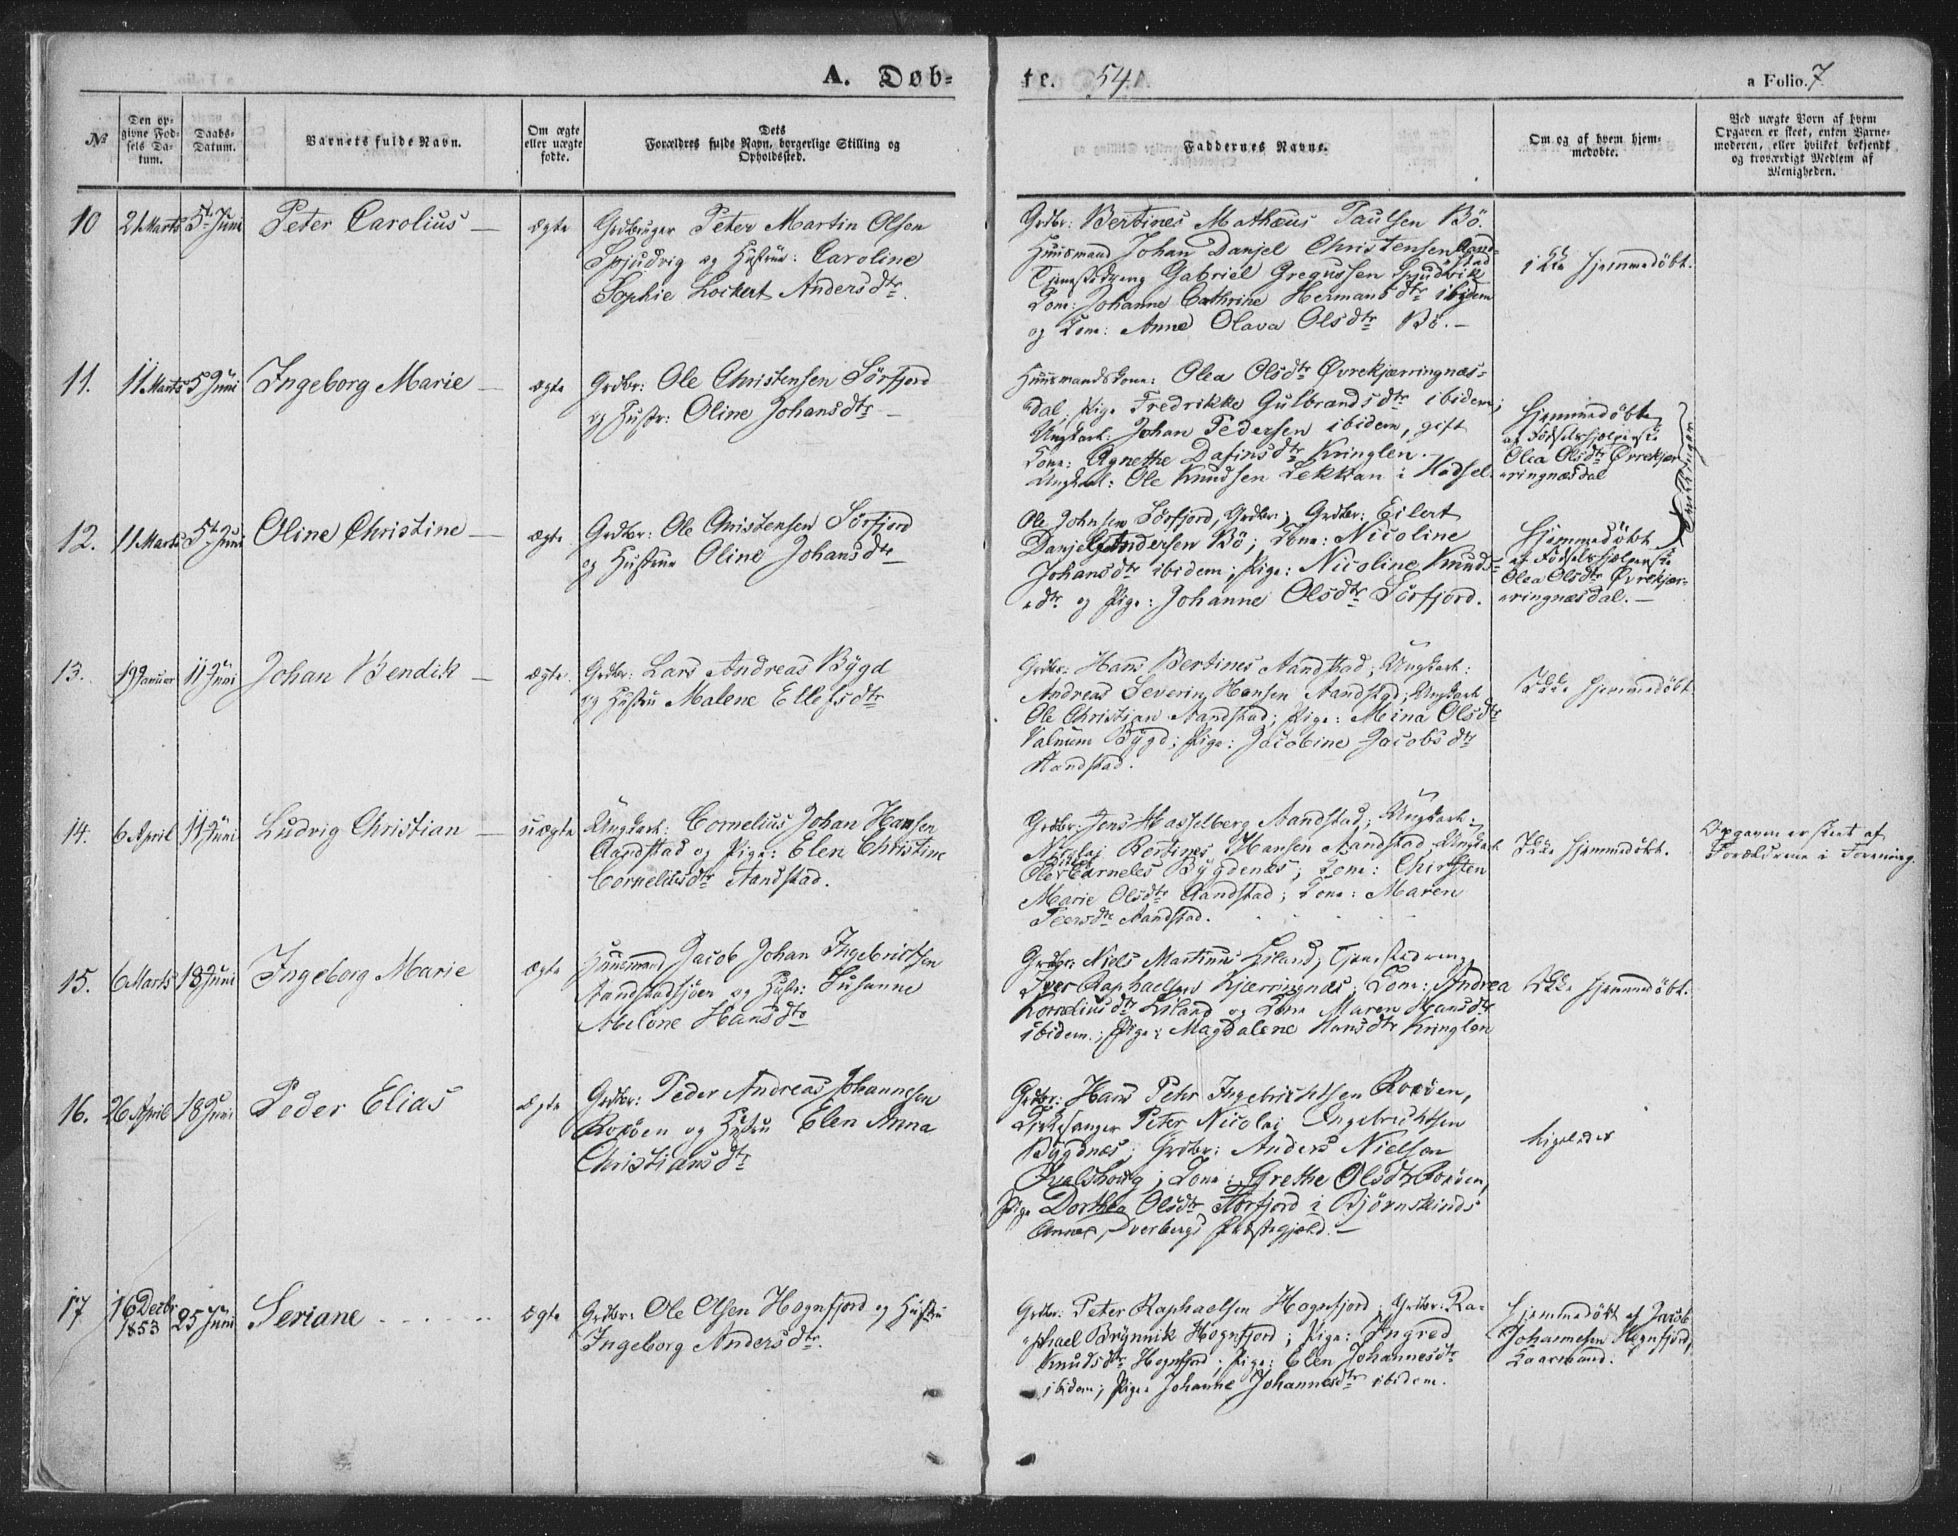 A. Døb-
te. 54.
a Folio. 7
№
Den op-
givne Fød-
sels Da-
tum.
Daabs-
Datum.
Barnets fulde Navn.
Om ægte
eller uægte
fødte.
Dets
Forældres fulde Navn, borgerlige Stilling og
Opholdssted.
Faddernes Navne.
Om og af hvem hjem-
medøbte.
Ved uægte Børn af hvem
Opgaven er skeet, enten Barne-
moderen, eller hvilket bekjendt
og troværdigt Medlem af
Menigheden.
10 21 Marts 5te Juni Peter Carolius — ægte
Grdbruger Peter Martin Olsen
Spjudvig og Hustrue: Caroline
Sophie Lockert Andersdtr.
Grdbr: Bertines Mathæus Paulsen Bö.
Huusmand Johan Danjel Christensen Aand-
stad
Tjenestedreng Gabriel Gregussen Spjudvik
Kone: Johanne Cathrine Hermansdtr ibidem
og Kone: Anne Olava Olsdtr Bö. —
ikke hjemmedøbt.
11. 11 Marts 5 Juni Ingeborg Marie — ægte
Grdbr: Ole Christensen Sörfjord
og Hustr: Oline Johansdtr —
Huusmandskone: Olea Olsdtr Øvrekjærringnæs-
dal, Pige Fredrikke Gulbrandsdtr ibidem;
Ungkarl: Johan Pedersen ibidem, gift
Kone: Agnethe Dafinsdtr Kringlen.
Ungkarl: Ole Knudsen Lekkan i Hadsel.
Hjemmedøbte
af Fødselshjælperske
Olea Olsdtr Øvrekjær-
ringnæsdal
Tvillinger
12. 11 Marts 5te Juni Oline Christine — ægte
Grdbr: Ole Christensen Sörfjord
og Hustrue Oline Johansdtr
Ole Johnsen Sörfjord, Grdbr; Grdbr: Eilert
Danjel Andersen Bö; Kone: Nicoline
Johansdtr ibidem; Pige: Nicoline Knuds-
dtr og Pige: Johanne Olsdtr Sörfjord.
Hjemmedøbt
af Fødselshjælperske
Olea Olsdtr Øvrekjær-
ringnæsdal. —
13. 19 Januar 11 Juni Johan Bendik — ægte
Grdbr: Lars Andreas Bygd
og Hustru Malene Ellefsdtr
Grdbr: Hans Bertines Aandstad; Ungkarl:
Andreas Severin Hansen Aandstad; Ungkarl
Ole Christian Aandstad; Pige: Mina Olsdtr
Valnum Bygd; Pige: Jacobine Jacobsdtr
Aandstad.
Ikke hjemmedøbt
14. 6 April 11 Juni Ludvig Christian — uægte
Ungkarl: Cornelius Johan Hansen
Aandstad og Pige: Elen Christine
Corneliusdtr Aandstad.
Grdbr: Jens Hasselberg Aandstad; Ungkarl:
Nicolai Bertines Hansen Aandstad Ungkarl
Ole Carneles Bygdenes; Kone: Chirsten
Marie Olsdtr Aandstad; Kone: Maren
Peersdtr Aandstad.
Ikke hjemmedøbt.
Opgaven er skeet af
Forældrene i Forening.
15. 6 Marts 18 Juni Ingeborg Marie ægte
Huusmand Jacob Johan Ingebrictsen
Aandstadsjøen og Hustr: Susanne
Abelone Hansdtr
Grdbr: Niels Martinus Eiland; Tjenestedreng
Iver Raphaelsen Kjærringnæs; Kone: Andrea
Korneliusdtr Eiland og Kone Maren Hansdtr
ibidem.; Pige: Magdalene Hansdtr Kringlen
Ikke hjemmedøbt.
16. 26 April 18 Juni Peder Elias ægte
Grdbr: Peder Andreas Johannesen
Roxöen og Hustru Elen Anna
Christiansdtr
Grdbr: Hans Pehr Ingebrichtsen Roxöen,
Kirkesanger Peter Nicolai Ingebrichtsen
Bygdnæs; Grdbr: Anders Nielsen
Kone: Grethe Olsdtr Roxöen,
Pige Dorthea Olsdtr Åfjord i Bjørnskinds
Annex, Dverbergs Præstegjæld. —
Ligeledes
17 16 Decbr
1853 25 Juni Seriane ægte
Grdbr: Ole Olsen Hognfjord og Hustru
Ingeborg Andersdtr.
Grdbr: Peter Raphaelsen Hognfjord; Grdbr: Ra-
phael Brynnik Hognfjord; Pige: Ingred
Knudsdtr Hognfjord; Pige: Elen Johannesdtr
ibidem; Pige: Johanne Johannesdtr ibidem.
Hjemmedøbt af Jacob
Johannesen Hognfjord,
Kaarmand.